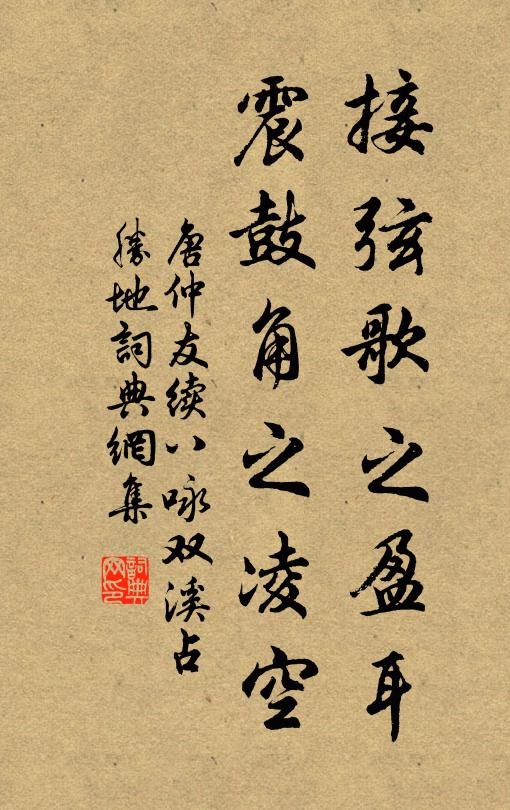 接弦歌之盈耳
震鼓角之凌空
唐仲友续八咏双溪占
勝地詞典網集
詞典
网印